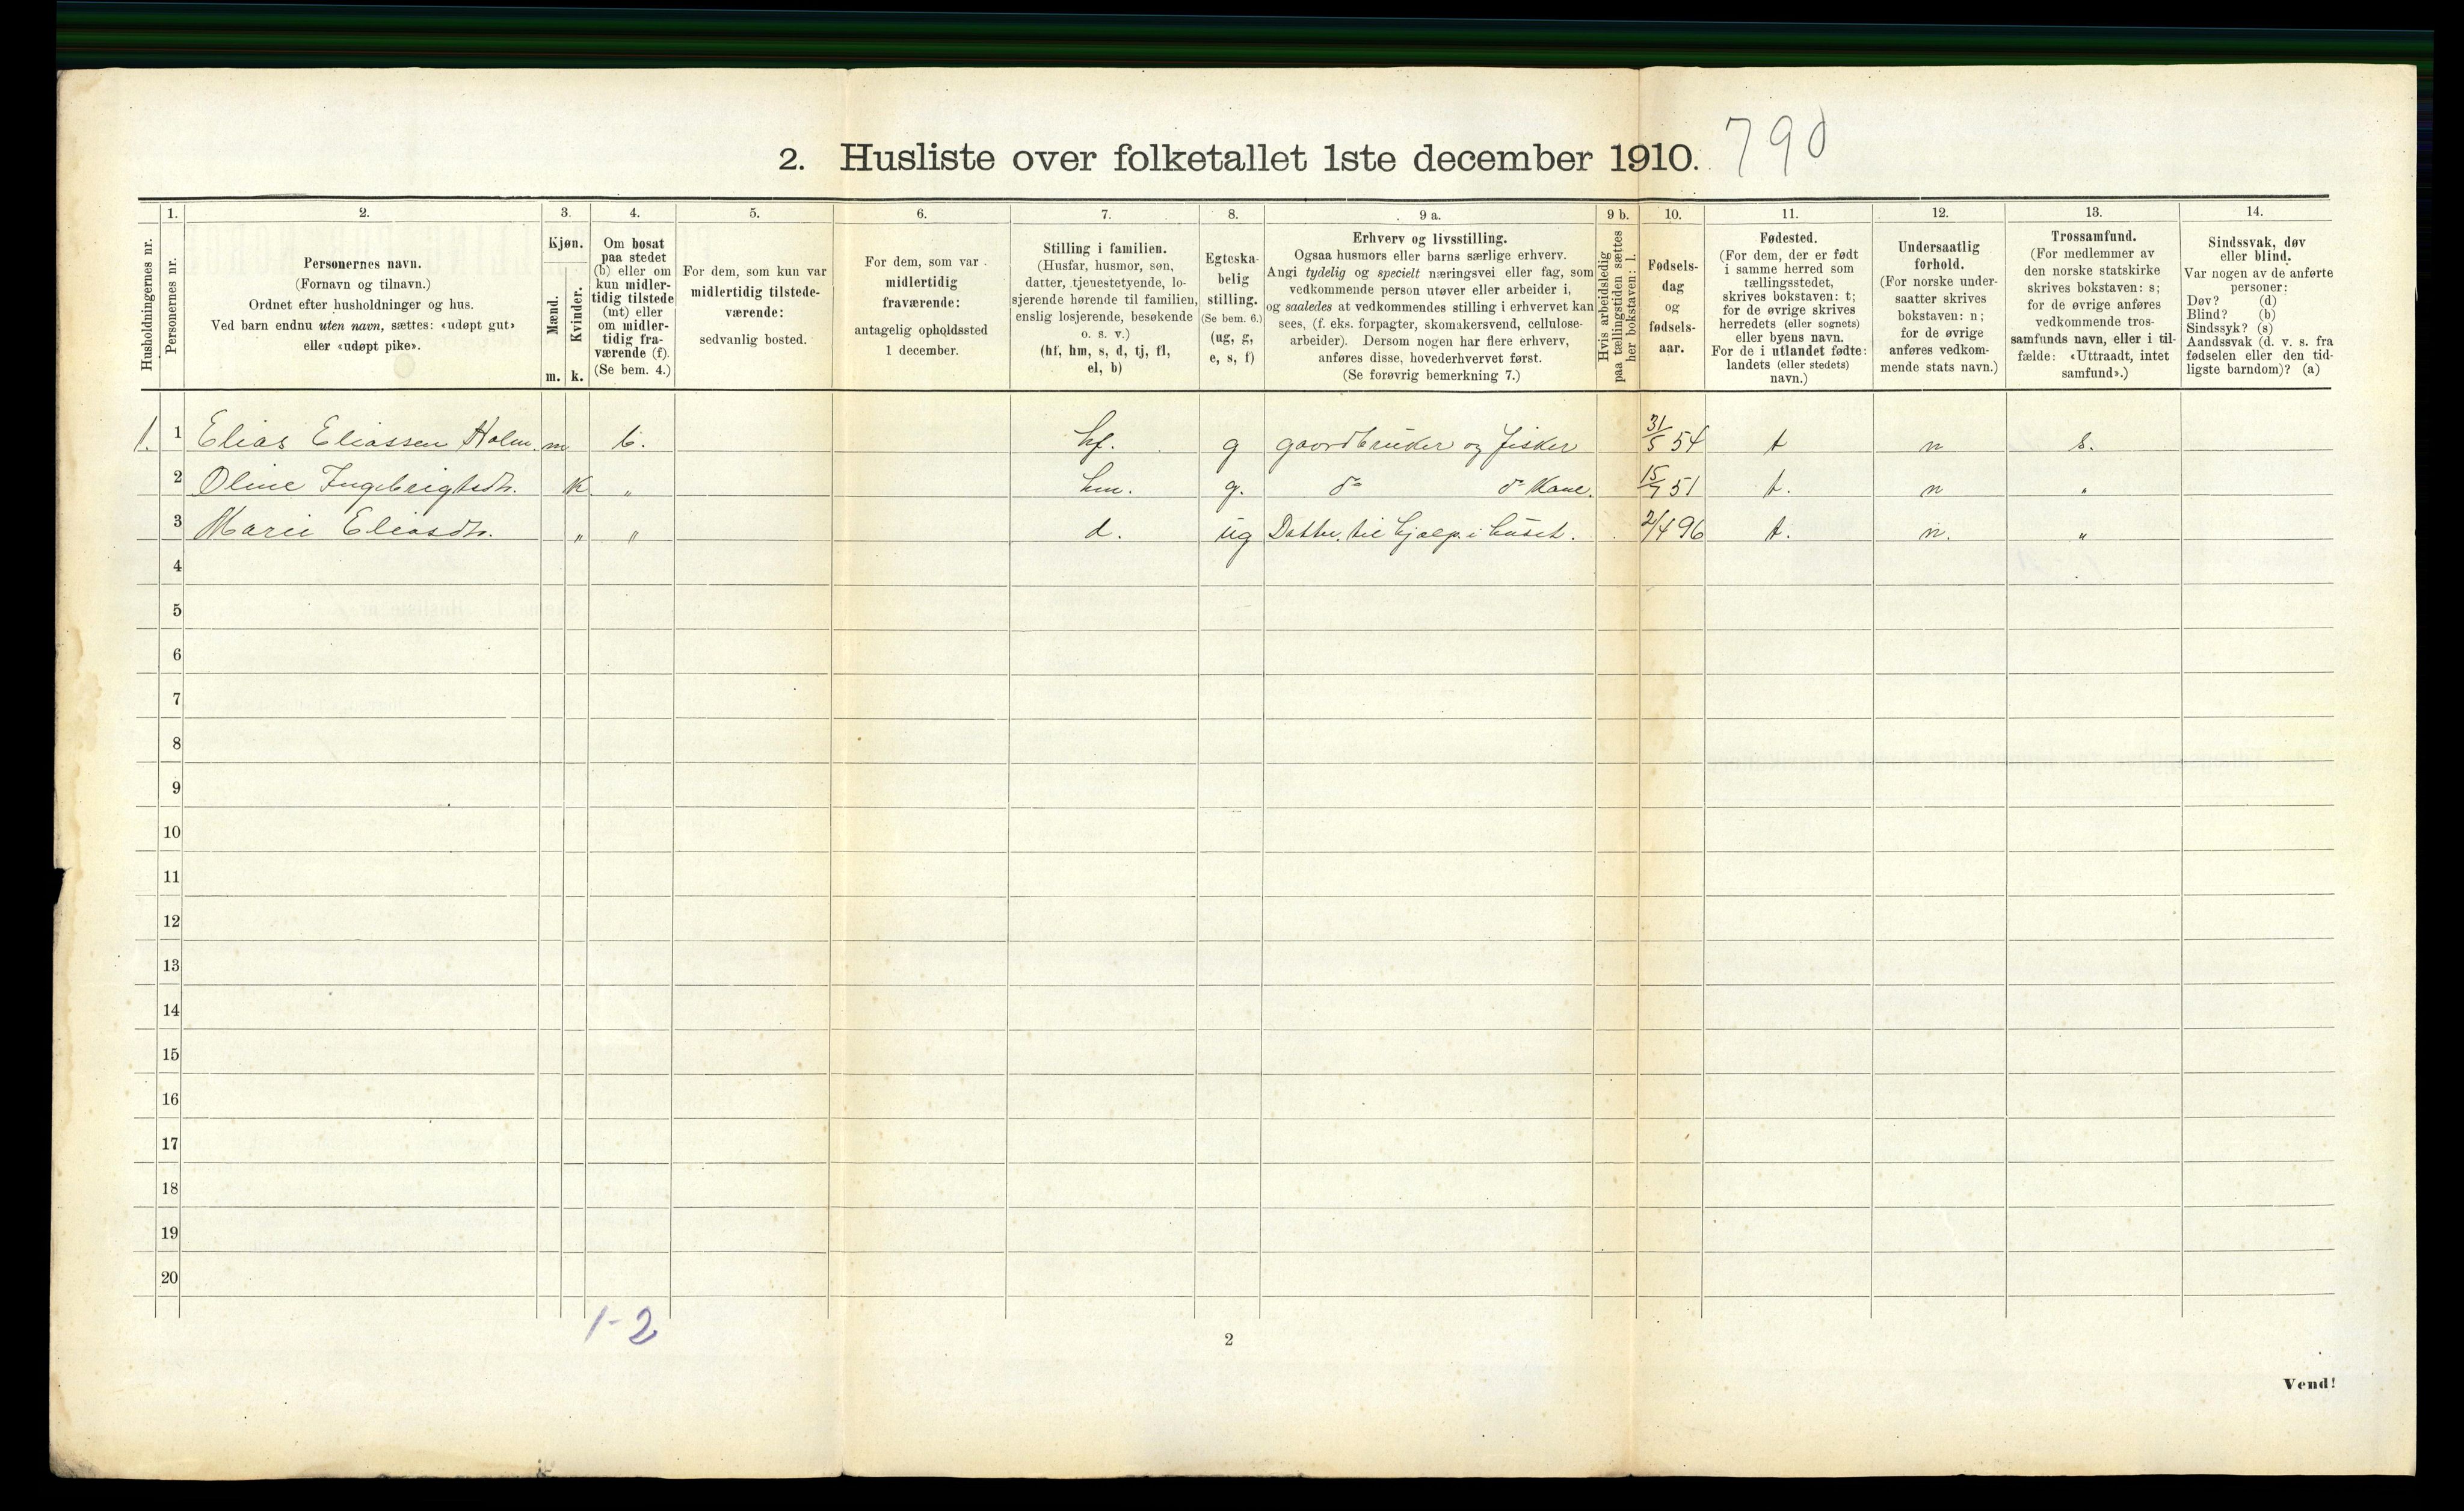 2. Husliste over folketallet 1ste december 1910. 790
Husholdningernes nr.
1.
Personernes nr.
2.
Personernes navn.
(Fornavn og tilnavn.)
Ordnet efter husholdninger og hus.
Ved barn endnu uten navn, sættes: «udøpt gut»
eller «udøpt pike».
3.
Kjøn.
Mænd.
Kvinder.
m. k.
4.
Om bosat
paa stedet
(b) eller om
kun midler-
tidig tilstede
(mt) eller
om midler-
tidig fra-
værende (f).
(Se bem. 4.)
5.
For dem, som kun var
midlertidig tilstede-
værende:
sedvanlig bosted.
6.
For dem, som var
midlertidig
fraværende:
antagelig opholdssted
1 december.
7.
Stilling i familien.
(Husfar, husmor, søn,
datter, tjenestetyende, lo-
sjerende hørende til familien,
enslig losjerende, besøkende
o. s. v.)
(hf, hm, s, d, tj, fl,
el, b)
8.
Egteska-
belig
stilling.
(Se bem. 6.)
(ug, g,
e, s, f)
9 a.
Erhverv og livsstilling.
Ogsaa husmors eller barns særlige erhverv.
Angi tydelig og specielt næringsvei eller fag, som
vedkommende person utøver eller arbeider i,
og saaledes at vedkommendes stilling i erhvervet kan
sees, (f. eks. forpagter, skomakersvend, cellulose-
arbeider). Dersom nogen har flere erhverv,
anføres disse, hovederhvervet først.
(Se forøvrig bemerkning 7.)
9 b.
Hvis arbeidsledig
paa tællingstiden sættes
her bokstaven: l.
10.
Fødsels-
dag
og
fødsels-
aar.
11.
Fødested.
(For dem, der er født
i samme herred som
tællingsstedet,
skrives bokstaven: t;
for de øvrige skrives
herredets (eller sognets)
eller byens navn.
For de i utlandet fødte:
landets (eller stedets)
navn.)
12.
Undersaatlig
forhold.
(For norske under-
saatter skrives
bokstaven: n;
for de øvrige
anføres vedkom-
mende stats navn.)
13.
Trossamfund.
(For medlemmer av
den norske statskirke
skrives bokstaven: s;
for de øvrige anføres
vedkommende tros-
samfunds navn, eller i til-
fælde: «Uttraadt, intet
samfund».)
14.
Sindssvak, døv
eller blind.
Var nogen av de anførte
personer:
Døv? (d)
Blind? (b)
Sindssyk? (s)
Aandssvak (d. v. s. fra
fødselen eller den tid-
ligste barndom)? (a)
1. 1 Elias Eliassen Holm. m b. hf. g gaardbruker og fisker 31/5 54 t n s.
2 Oline Ingebrigtsdtr. K „ hm. g. do do Kone. 15/7 51 t. n „
3 Marie Eliasdtr. „ „ d. ug Datter til hjælp i huset. 2/4 96 t. n. „
4
5
6
7
8
9
10
11
12
13
14
15
16
17
18
19
20
1-2
2
Vend!